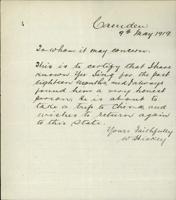 Camden
9th May 1919
To whom it may concern.
This is to certify that I have
known Yee Sing for the past
eighteen months, and I always
found him a very honest
person. He is about to
take a trip to China and
wishes to return again
to this State.
Yours Faithfully
W Hickey